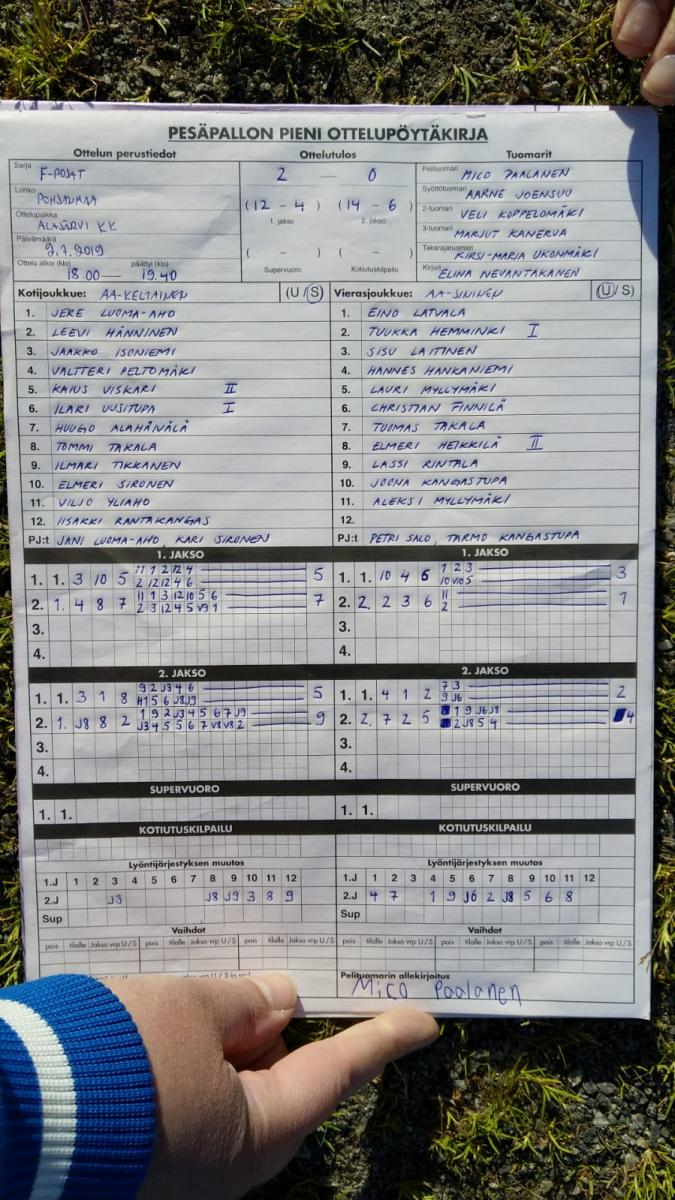 PESÄPALLON PIENI OTTELUPÖYTÄKIRJA
Ottelun perustiedot Ottelutulos Tuomarit
Sarja F-POJAT 2 — 0 Pelituomari MICO PAALANEN
Lohko POHJANMAA (12 - 4) (14 - 6) Syöttötuomari AARNE JOENSUU
Ottelupaikka ALAJÄRVI KK 1. jakso 2. jakso 2-tuomari VELI KOPPELOMÄKI
Päivämäärä 2.7.2019 ( - ) ( - ) 3-tuomari MARJUT KANERVA
Ottelu alkoi (klo) päättyi (klo) Takarajatuomari KIRSI-MARIA UKONMÄKI
18.00 — 19.40 Supervuoro Kotiutuskilpailu ELINA NEVANTAKANEN
Kotijoukkue: AA-KELTAINEN (U/S) Vierasjoukkue: AA-SININEN (U/S)
1. JERE LUOMA-AHO 1. EINO LATVALA
2. LEEVI HÄNNINEN 2. TUUKKA HEMMINKI I
3. JAAKKO ISONIEMI 3. SISU LAITINEN
4. VALTTERI PELTOMÄKI 4. HANNES HANKANIEMI
5. KAIUS VISKARI II 5. LAURI MYLLYMÄKI
6. ILARI UUSITUPA I 6. CHRISTIAN FINNILÄ
7. HUUGO ALAHÄIVÄLÄ 7. TUOMAS TAKALA
8. TOMMI TAKALA 8. ELMERI HEIKKILÄ II
9. ILMARI TIKKANEN 9. LASSI RINTALA
10. ELMERI SIRONEN 10. JOONA KANGASTUPA
11. VILJO YLIAHO 11. ALEKSI MYLLYMÄKI
12. IISAKKI RANTAKANGAS 12.
PJ:t JANI LUOMA-AHO, KARI SIRONEN PJ:t PETRI SALO, TARMO KANGASTUPA
1. JAKSO 1. JAKSO
1. 1. 3 10 5 11 1 2 12 4 5 1. 1. 10 4 6 1 2 3 3
2 12 12 4 6 10 V10 5
2. 1. 4 8 7 11 1 3 12 10 5 6 7 2. 2. 2 3 6 11 1
2 3 12 4 5 V9 1 2
3. 3.
4. 4.
2. JAKSO 2. JAKSO
1. 1. 3 1 8 9 2 J3 4 6 5 1. 1. 4 1 2 7 3 2
1 5 6 J8 J9 9 J6
2. 1. J8 8 2 1 9 2 J3 4 5 6 7 J9 9 2. 2. 7 2 5 1 9 J6 J8 4
J3 4 5 5 6 7 V8 V8 2 2 J8 5 4
3. 3.
4. 4.
SUPERVUORO SUPERVUORO
1. 1. 1. 1.
KOTIUTUSKILPAILU KOTIUTUSKILPAILU
Lyöntijärjestyksen muutos Lyöntijärjestyksen muutos
1.J 1 2 3 4 5 6 7 8 9 10 11 12 1.J 1 2 3 4 5 6 7 8 9 10 11 12
2.J J3 J8 J9 3 8 9 2.J 4 7 1 9 J6 2 J8 5 6 8
Sup Sup
Vaihdot Vaihdot
pois tilalle Jakso vrp U/S pois tilalle Jakso vrp U/S pois tilalle Jakso vrp U/S pois tilalle Jakso vrp U/S pois tilalle Jakso vrp U/S pois tilalle Jakso vrp U/S
Pelituomarin allekirjoitus
Mico Paalanen